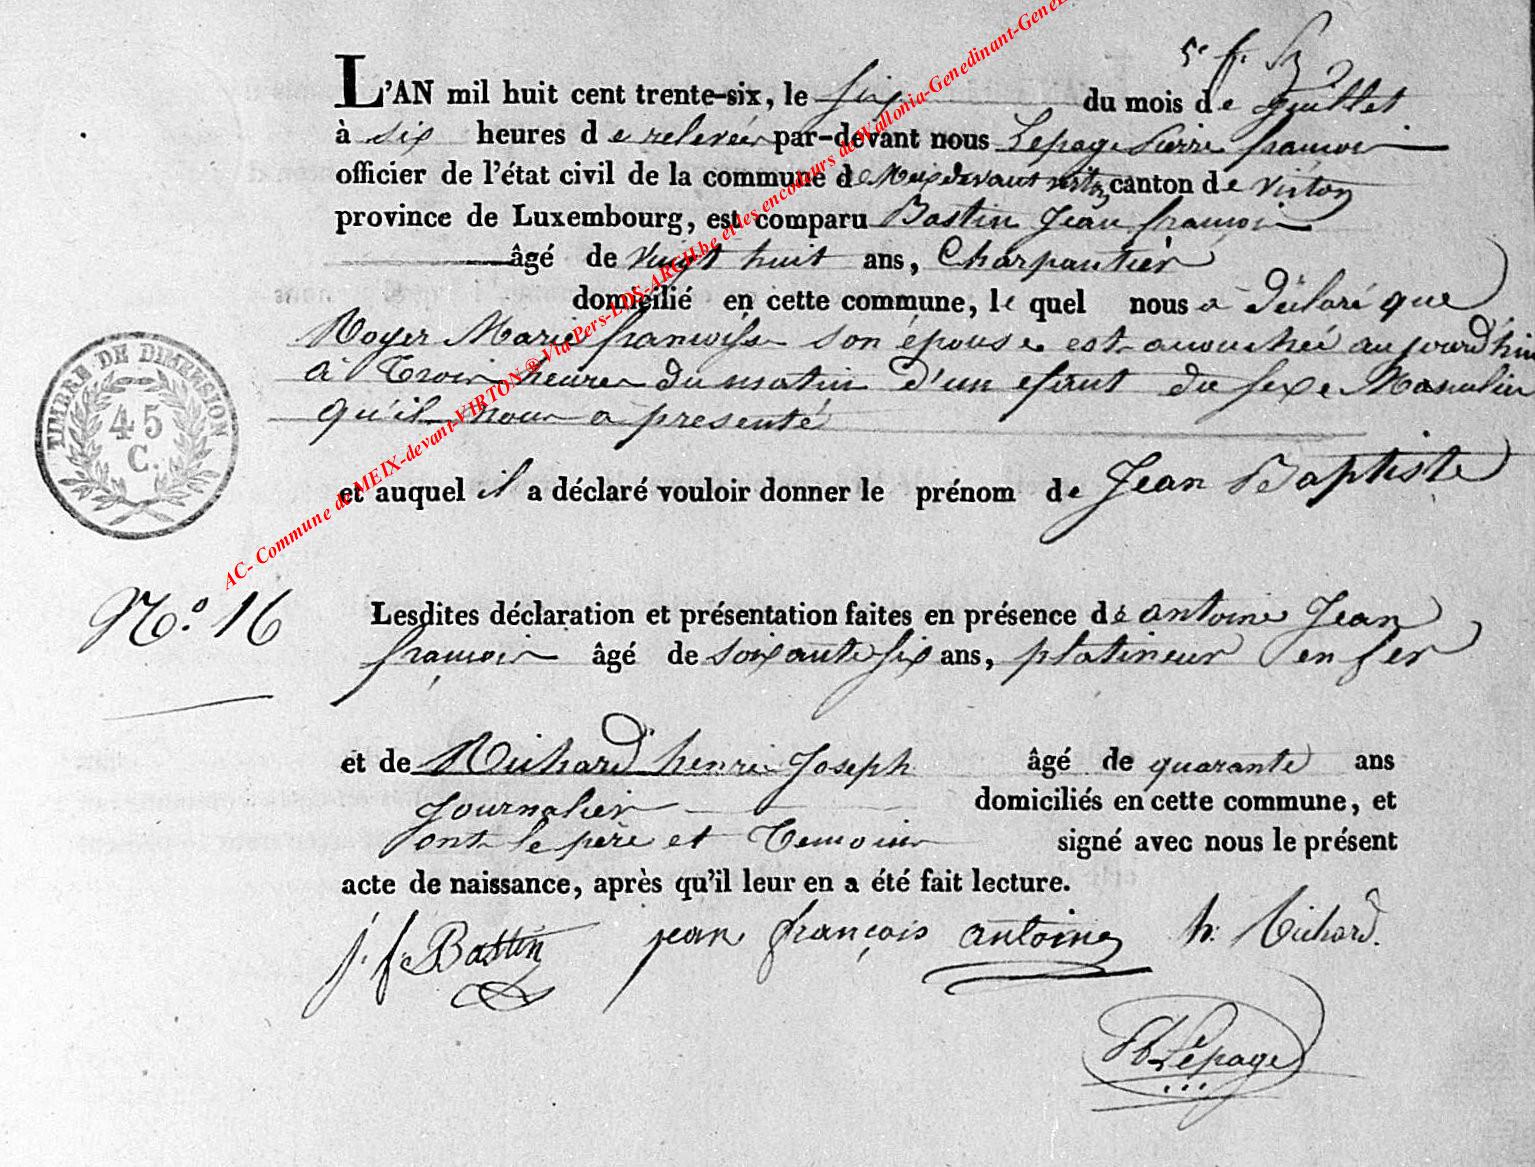 5e f.
L'AN mil huit cent trente-six, le six du mois de Juillet
à six heures de relevée par-devant nous Lepage Pierre françois
officier de l'état civil de la commune de Meix devant virton canton de virton
province de Luxembourg, est comparu Bastin Jean françois
âgé de vingt huit ans, Charpentier
domicilié en cette commune, le quel nous a déclaré que
Royer Marie françoise son épouse est accouchée aujourd'hui
à trois heures du matin d'un efant du sexe Masculin
qu'il nous a presenté
et auquel il a déclaré vouloir donner le prénom de Jean Baptiste
TIMBRE DE DIMENSION
45
C.
No. 16
Lesdites déclaration et présentation faites en présence de antoine Jean
françois âgé de soixante six ans, platineur en fer
et de Richard henri Joseph âgé de quarante ans
Journalier domiciliés en cette commune, et
ont le père et temoins signé avec nous le présent
acte de naissance, après qu'il leur en a été fait lecture.
j. f. Bastin jean françois antoine h. Richard.
Lepage
AC- Commune de MEIX-devant-VIRTON ® Via Pers-LDS-ARCH.be et les encodeurs de Wallonia-Genedinant-Genel